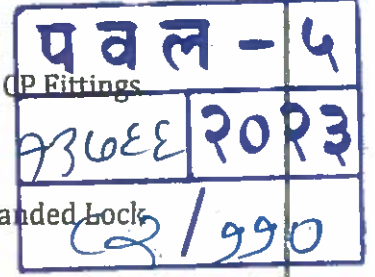 पवल - ५
CP Fittings
१३७६६ २०२३
anded Lock
८२ / ११०